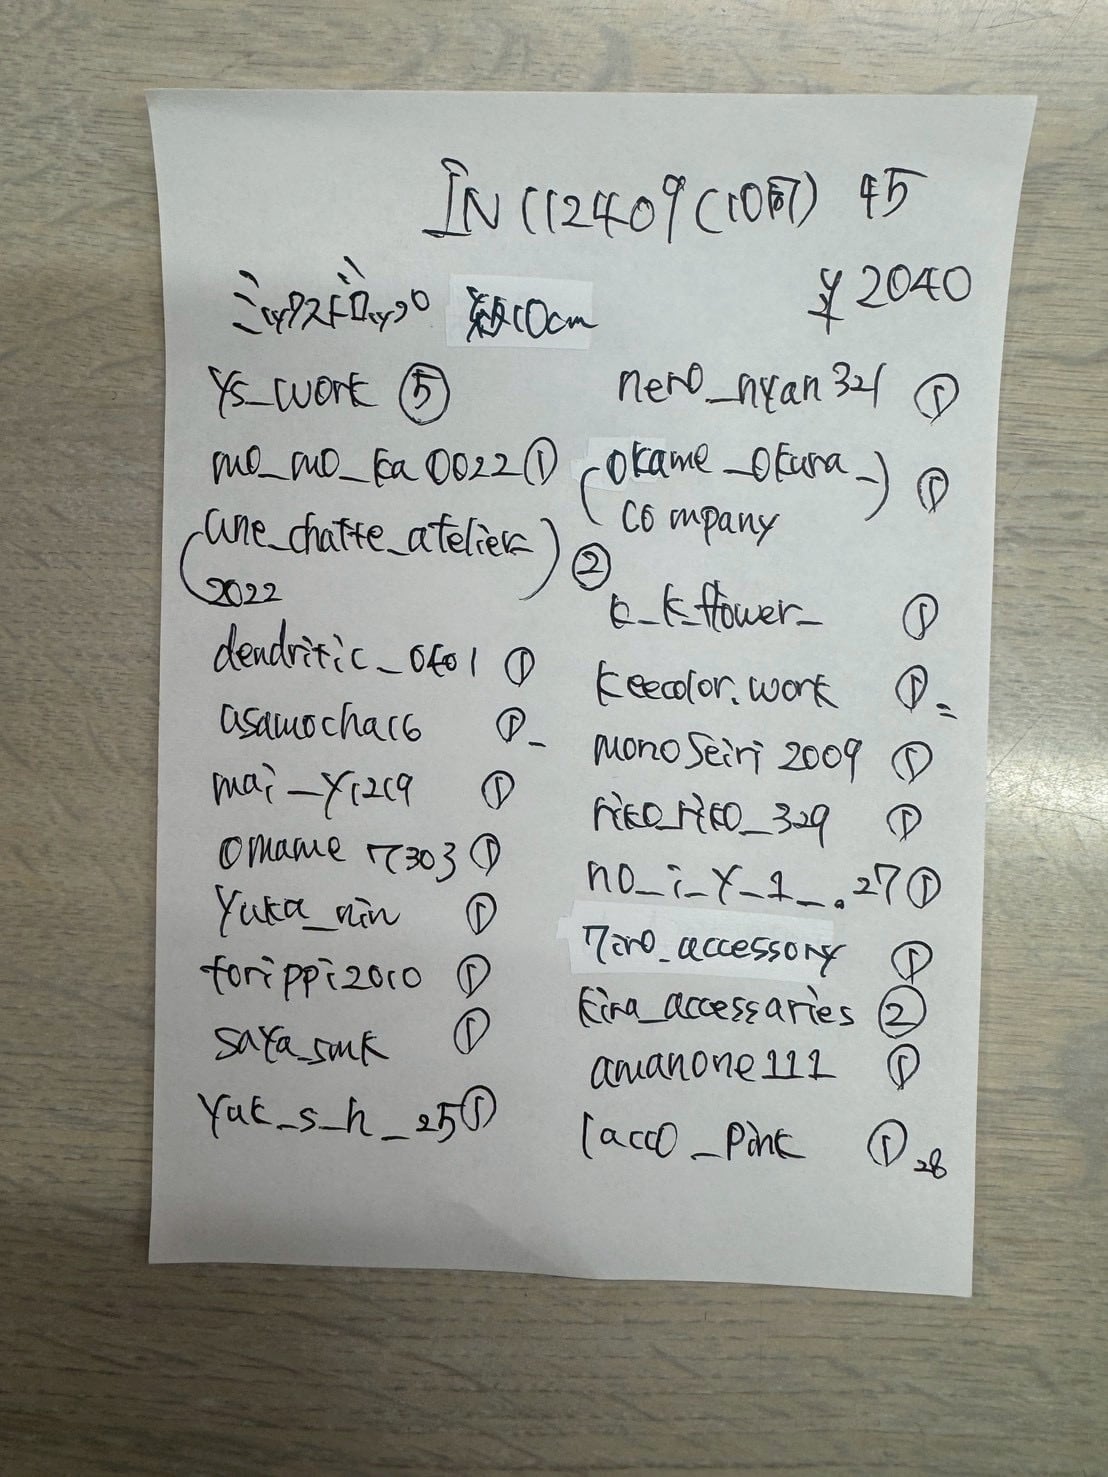 IN112409(10時) 45
ミックスドロップ 約10cm
¥2040
ys_work ⑤
mo_mo_ka0022 ①
(une_chatte_atelier_
2022) ②
dendritic_0401 ①
asamocha16 ①_
mai_y1219 ①
omame 7303 ①
yuka_nin ①
torippi2010 ①
saya_smk ①
yuk_s_h_25 ①
nero_nyan321 ①
(okame_okura_
company) ①
k_k_flower_ ①
keecolor.work ①=
monoseiri2009 ①
riko_riko_329 ①
no_i_y_1_.27 ①
7iro_accessory ①
kira_accessaries ②
amanone111 ①
lacco_pink ① 28